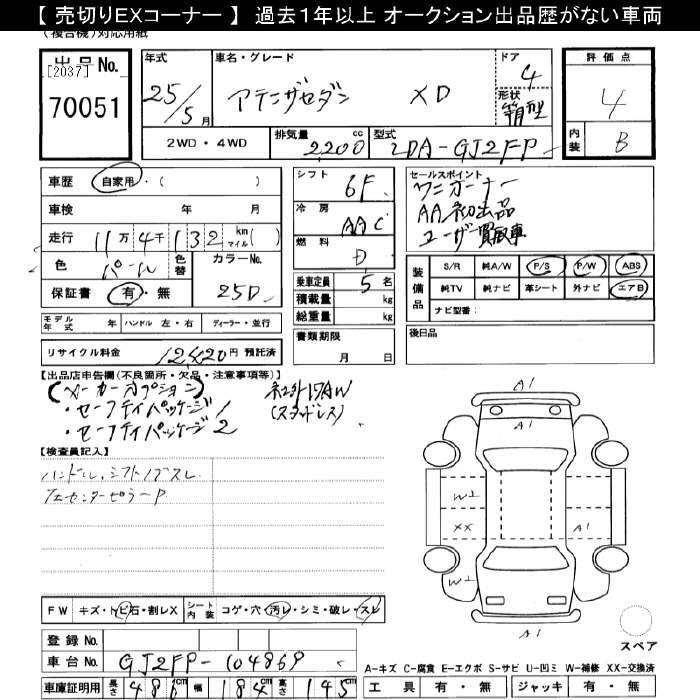 【 売切りEXコーナー 】 過去1年以上 オークション出品歴がない車両
(複合機)対応用紙
出品No.
[2037]
70051
年式 車名・グレード ドア 評価点
25/5月 アテンザセダン XD 4
形状 箱型 4
2WD・4WD 排気量 2200cc 型式 LDA-GJ2FP 内装 B
車歴 自家用・( )
車検 年 月
走行 11万4千132 km マイル( )
色 パール 色替 カラーNo. 25D
保証書 有・無
モデル年式 年 ハンドル 左・右 ディーラー・並行
リサイクル料金 12420円 預託済
シフト 6F
冷房 AAC
燃料 D
乗車定員 5名
積載量 kg
総重量 kg
書類期限
月 日
セールスポイント
ワンオーナー
AA初出品
ユーザー買取車
装備品 S/R 純A/W P/S P/W ABS
純TV 純ナビ 革シート 外ナビ エアB
ナビ型番:
後日品
【出品店申告欄(不良箇所・欠品・注意事項等)】
(メーカーオプション)
・セーフティパッケージ1
・セーフティパッケージ2
17AW
(スタッドレス)
【検査員記入】
ハンドル、シフトノブスレ
センターピラーP
A1
A1
W2
XX
A1
W2
A1
FW キズ・トビ石・割レX シート内装 コゲ・穴・汚レ・シミ・破レ・スレ
登録No.
車台No. GJ2FP-104869
車庫証明用 長さ 486cm 幅 184cm 高さ 145cm
スペア
A-キズ C-腐食 E-エクボ S-サビ U-凹ミ W-補修 XX-交換済
工具 有・無 ジャッキ 有・無